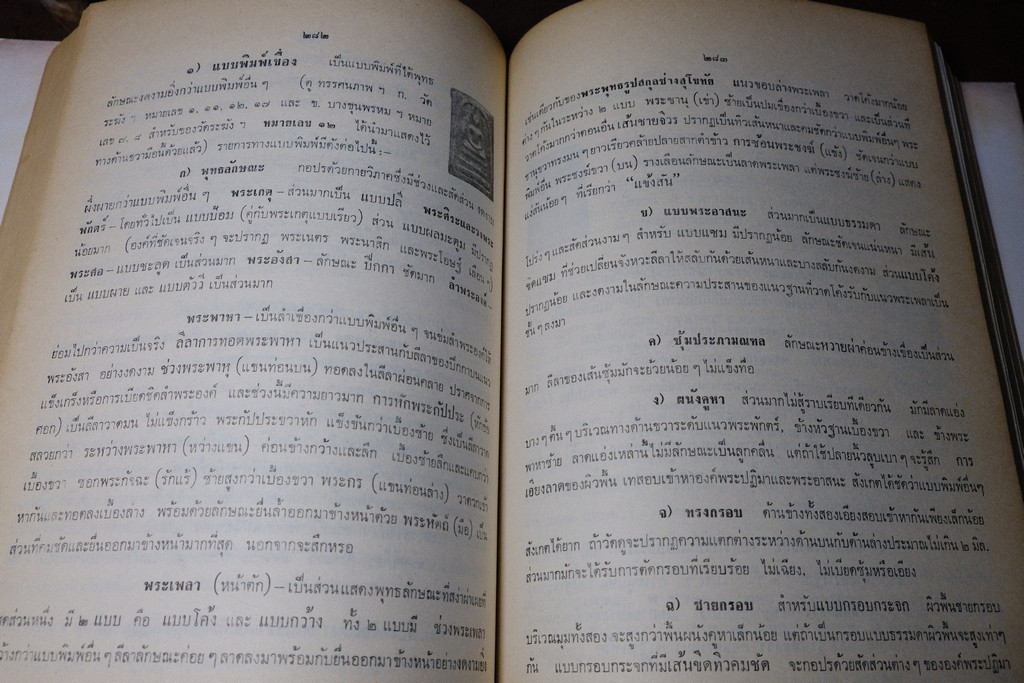 ๒๘๒
๑) แบบพิมพ์เขื่อง เป็นแบบพิมพ์ที่ได้พุทธ
ลักษณะงดงามยิ่งกว่าแบบพิมพ์อื่น ๆ (ดู ทรรศนภาพ ฯ ก. วัด
ระฆัง ฯ หมายเลข ๑, ๑๑, ๑๒, ๑๗ และ ข. บางขุนพรหม ฯ หมาย
เลข ๗, ๘ สำหรับของวัดระฆัง ฯ หมายเลข ๑๒ ได้นำมาแสดงไว้
ทางด้านขวามือนี้ด้วยแล้ว) รายการทางแบบพิมพ์มีดังต่อไปนี้ :–
ก) พุทธลักษณะ กอปรด้วยกายวิภาคซึ่งมีช่วงและสัดส่วน งดงาม
ผึ่งผายกว่าแบบพิมพ์อื่น ๆ พระเกตุ – ส่วนมากเป็น แบบปลี พระศิระและวงพระ
พักตร์ – โดยทั่วไปเป็น แบบป้อม (คู่กับพระเกตุแบบเรียว) ส่วน แบบผลมะตูม มีปรากฏ
น้อยมาก (องค์ที่ชัดเจนจริง ๆ จะปรากฏ พระเนตร พระนาสิก และพระโอษฐ์ เลือน ๆ)
พระศอ – แบบชะลูด เป็นส่วนมาก พระอังสา – ลักษณะ ปีกกา ชัดมาก ลำพระองค์ –
เป็น แบบผาย และ แบบตัววี เป็นส่วนมาก
พระพาหา – เป็นลำเขื่องกว่าแบบพิมพ์อื่น ๆ จนข่มลำพระองค์ให้
ย่อมไปกว่าความเป็นจริง ลีลาการทอดพระพาหา เป็นแนวประสานกับลีลาของปีกกาบนแนว
พระอังสา อย่างงดงาม ช่วงพระพาหุ (แขนท่อนบน) ทอดลงในลีลาผ่อนคลาย ปราศจากการ
แข็งเกร็งหรือการเบียดชิดลำพระองค์ และช่วงนี้มีความยาวมาก การหักพระกัปประ (หักข้อ
ศอก) เป็นลีลาวาดมน ไม่แข็งกร้าว พระกัปประขวาหัก แข็งขันกว่าเบื้องซ้าย ซึ่งเป็นลีลาวาด
สลวยกว่า ระหว่างพระพาหา (หว่างแขน) ค่อนข้างกว้างและลึก เบื้องซ้ายลึกและแคบกว่า
เบื้องขวา ซอกพระกัจฉะ (รักแร้) ซ้ายสูงกว่าเบื้องขวา พระกร (แขนท่อนล่าง) วาดวกเข้า
หากันและทอดลงเบื้องล่าง พร้อมด้วยลักษณะยื่นล้ำออกมาข้างหน้าด้วย พระหัตถ์ (มือ) เป็น
ส่วนที่คมชัดและยื่นออกมาข้างหน้ามากที่สุด นอกจากจะสึกหรอ
พระเพลา (หน้าตัก) – เป็นส่วนแสดงพุทธลักษณะที่สง่าผ่าเผยที่
สุดส่วนหนึ่ง มี ๒ แบบ คือ แบบโค้ง และ แบบกว้าง ทั้ง ๒ แบบมี ช่วงพระเพลา
กว้างกว่าแบบพิมพ์อื่น ๆ ลีลาลักษณะค่อย ๆ ลาดลงมาพร้อมกับยื่นออกมาข้างหน้าอย่างงดงามยิ่ง
๒๘๓
เช่นเดียวกับของพระพุทธรูปสกุลช่างสุโขทัย แนวขอบล่างพระเพลา วาดโค้งมากน้อย
ต่าง ๆ กันในระหว่าง ๒ แบบ พระชานุ (เข่า) ซ้ายเป็นปมเขื่องกว่าเบื้องขวา และเป็นส่วนที่
วาดโค้งมากกว่าตอนอื่น เส้นชายจีวร ปรากฏเป็นทิวเส้นหนาและคมชัดกว่าแบบพิมพ์อื่นๆ พระ
ชานุขวาทรงมน ๆ ยาวเรียวคล้ายปลายสากตำข้าว การซ้อนพระชงฆ์ (แข้ง) ชัดเจนกว่าแบบ
พิมพ์อื่น พระชงฆ์ขวา (บน) รางเลือนลักษณะเป็นลาดพระเพลา แต่พระชงฆ์ซ้าย (ล่าง) แสดง
แง่สันน้อย ๆ ที่เรียกว่า “แข้งสัน”
ข) แบบพระอาสนะ ส่วนมากเป็นแบบธรรมดา ลักษณะ
โปร่ง ๆ และสัดส่วนงาม ๆ สำหรับ แบบแซม มีปรากฏน้อย ลักษณะชัดเจนแน่นหนา มีเส้น
ขีดแซม ที่ช่วยเปลี่ยนจังหวะลีลาให้สลับกันด้วยเส้นหนาและบางสลับกันงดงาม ส่วนแบบโค้ง
ปรากฏน้อย และงดงามในลักษณะความประสานของแนวฐานที่วาดโค้งรับกับแนวพระเพลาเป็น
ชั้น ๆ ลงมา
ค) ซุ้มประภามณฑล ลักษณะหวายผ่าค่อนข้างเขื่องเป็นส่วน
มาก ลีลาของเส้นซุ้มมักจะย้วยน้อย ๆ ไม่แข็งทื่อ
ง) ผนังคูหา ส่วนมากไม่สู้ราบเรียบทีเดียวกัน มักมีลาดแอ่ง
บาง ๆ ตื้น ๆ บริเวณทางด้านขวาระดับแนวพระพักตร์, ข้างหัวฐานเบื้องขวา และ ข้างพระ
พาหาซ้าย ลาดแอ่งเหล่านี้ไม่มีลักษณะเป็นลูกคลื่น แต่ถ้าใช้ปลายนิ้วลูบเบา ๆ จะรู้สึก การ
เอียงลาดของผิวพื้น เทสอบเข้าหาองค์พระปฏิมาและพระอาสนะ สังเกตได้ชัดว่าแบบพิมพ์อื่นๆ
จ) ทรงกรอบ ด้านข้างทั้งสองเอียงสอบเข้าหากันเพียงเล็กน้อย
สังเกตได้ยาก ถ้าวัดดูจะปรากฏความแตกต่างระหว่างด้านบนกับด้านล่างประมาณไม่เกิน ๒ มิล.
ส่วนมากมักจะได้รับการตัดกรอบที่เรียบร้อย ไม่เฉียง, ไม่เบียดซุ้มหรือเอียง
ฉ) ชายกรอบ สำหรับแบบกรอบกระจก ผิวพื้นชายกรอบ
บริเวณมุมทั้งสอง จะสูงกว่าพื้นผนังคูหาเล็กน้อย แต่ถ้าเป็นกรอบแบบธรรมดาผิวพื้นจะสูงเท่าๆ
กัน แบบกรอบกระจกที่มีเส้นขีดทิวคมชัด จะกอปรด้วยสัดส่วนต่าง ๆ ขององค์พระปฏิมา